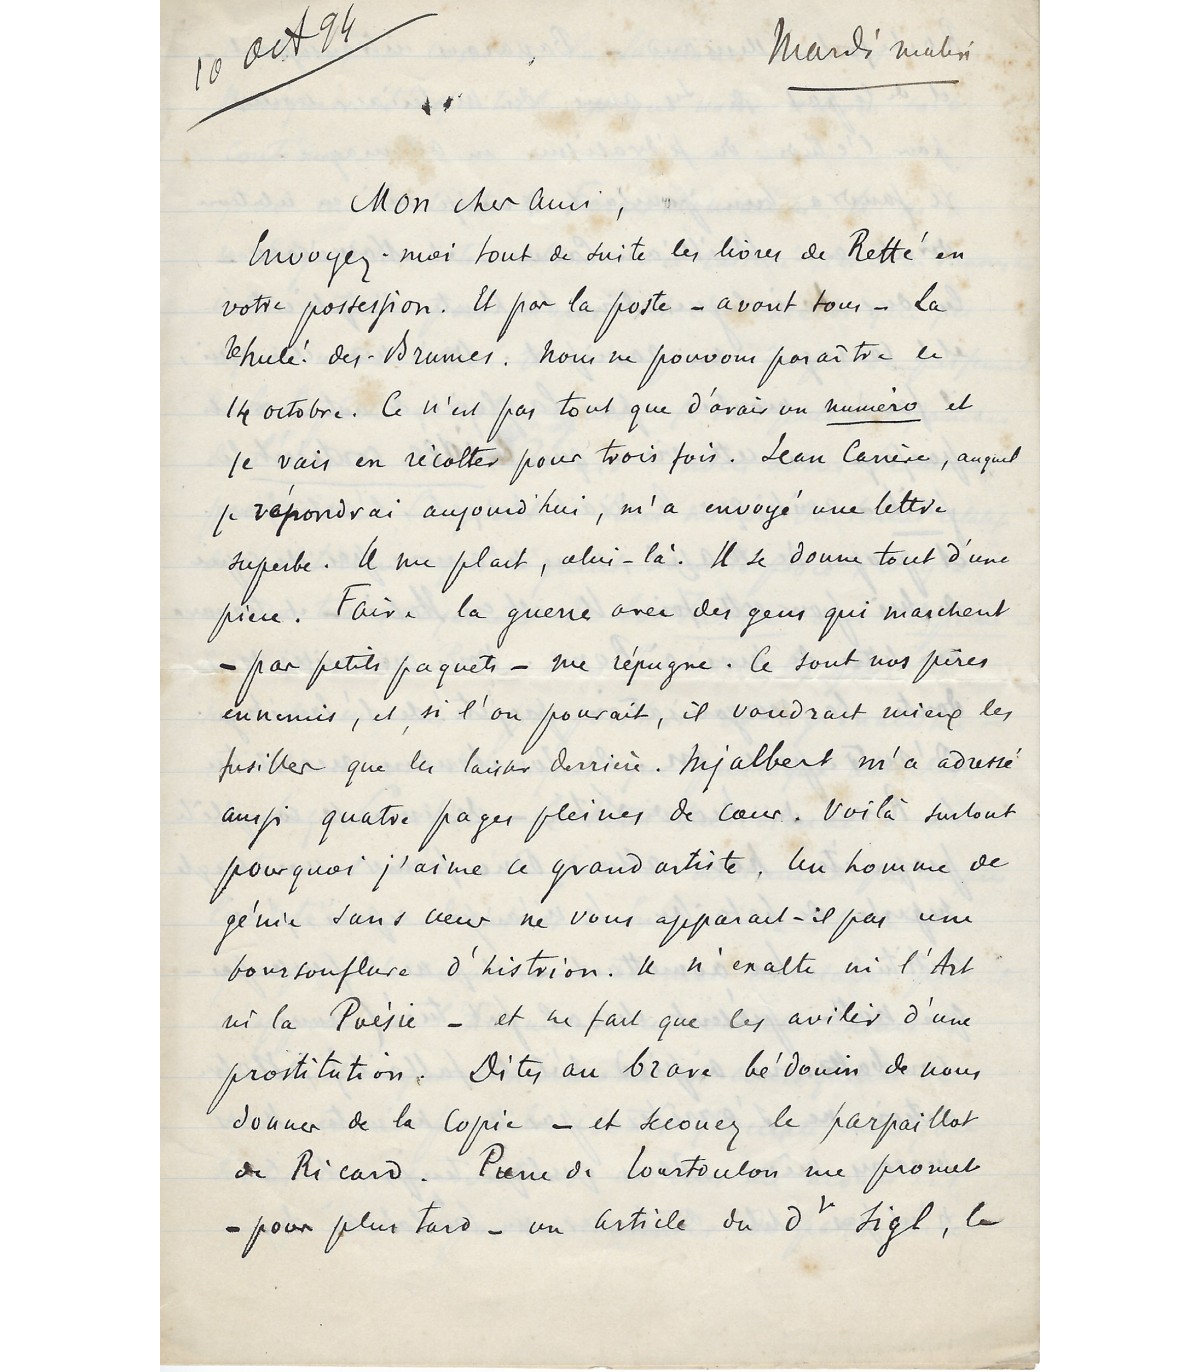 10 oct 94
Mardi matin
Mon cher ami,
Envoyez-moi tout de suite les livres de Retté en
votre possession. Et par la poste – avant tous – La
Thulé des Brumes. Nous ne pouvons paraître le
14 octobre. Ce n'est pas tout que d'avoir un numéro et
je vais en récolter pour trois fois. Jean Carrère, auquel
je répondrai aujourd'hui, m'a envoyé une lettre
superbe. Il me plaît, celui-là. Il se donne tout d'une
pièce. Faire la guerre avec des gens qui marchent
– par petits paquets – me répugne. Ce sont nos pires
ennemis, et, si l'on pouvait, il vaudrait mieux les
fusiller que les laisser derrière. Injalbert m'a adressé
aussi quatre pages pleines de cœur. Voilà surtout
pourquoi j'aime ce grand artiste. Un homme de
génie sans cœur ne vous apparaît-il pas une
boursouflure d'histrion. Il n'exalte ni l'Art
ni la Poésie – et ne fait que les avilir d'une
prostitution. Dites au brave bédouin de nous
donner de la copie – et secouez le parpaillot
de Ricard. Pierre de Tourtoulon me promet
– pour plus tard – un article du Dr Sigl, le